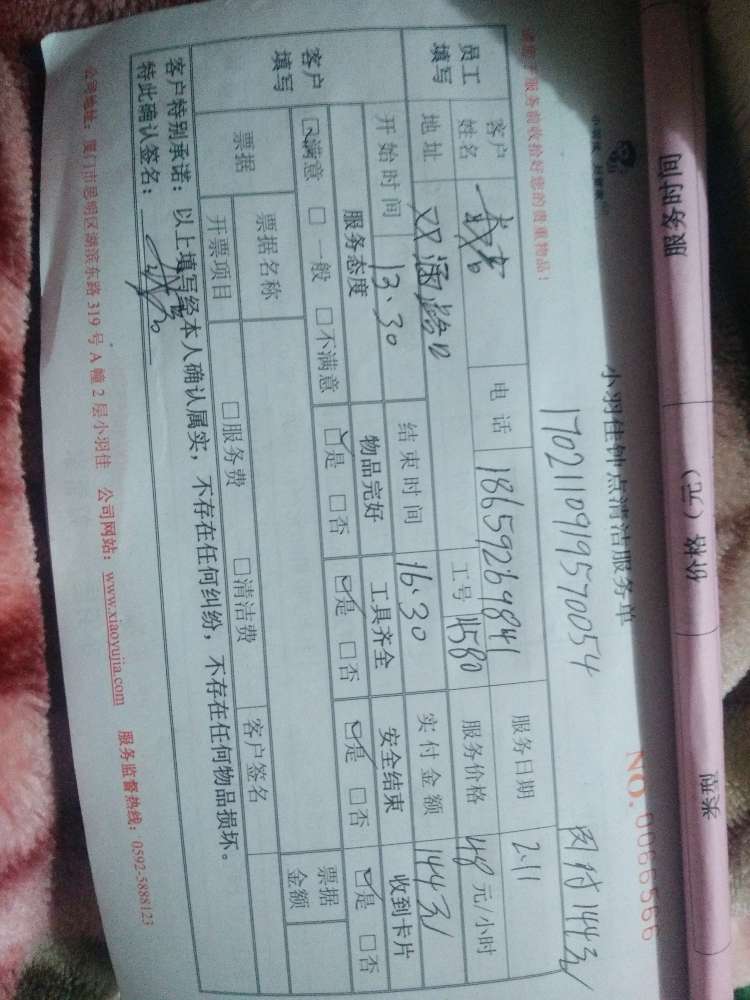 服务时间 价格（元） 类型
小羽佳钟点清洁服务单
NO.0066566
1702110919570054 144元
服务前收拾好您的贵重物品！
员工填写 客户姓名 电话 18659269841 服务日期 2.11
地址 双涵路口 工号 11580 服务价格 48 元/小时
开始时间 13.30 结束时间 16.30 实付金额 144元
客户填写 服务态度 物品完好 工具齐全 安全结束 收到卡片
☑满意 □一般 □不满意 ☑是 □否 ☑是 □否 ☑是 □否 ☑是 □否
票据 票据名称 客户签名 票据金额
开票项目 □服务费 □清洁费
客户特别承诺：以上填写经本人确认属实，不存在任何纠纷，不存在任何物品损坏。
特此确认签名：
公司地址：厦门市思明区湖滨东路 319 号 A 幢 2 层小羽佳 公司网站：www.xiaoyujia.com 服务监督热线：0592-5888123